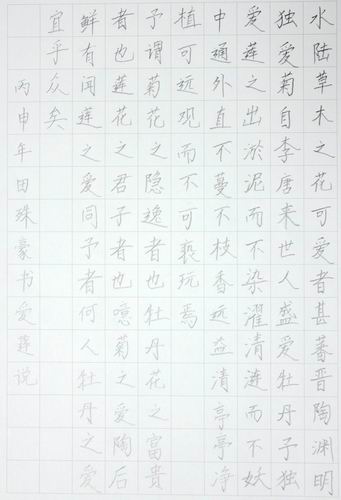 水陆草木之花可爱者甚蕃晋陶渊明
独爱菊自李唐来世人盛爱牡丹予独
爱莲之出淤泥而不染濯清涟而不妖
中通外直不蔓不枝香远益清亭亭净
植可远观而不可亵玩焉
予谓菊花之隐逸者也牡丹花之富贵
者也莲花之君子者也噫菊之爱陶后
鲜有闻莲之爱同予者何人牡丹之爱
宜乎众矣
丙申年田殊豪书爱莲说